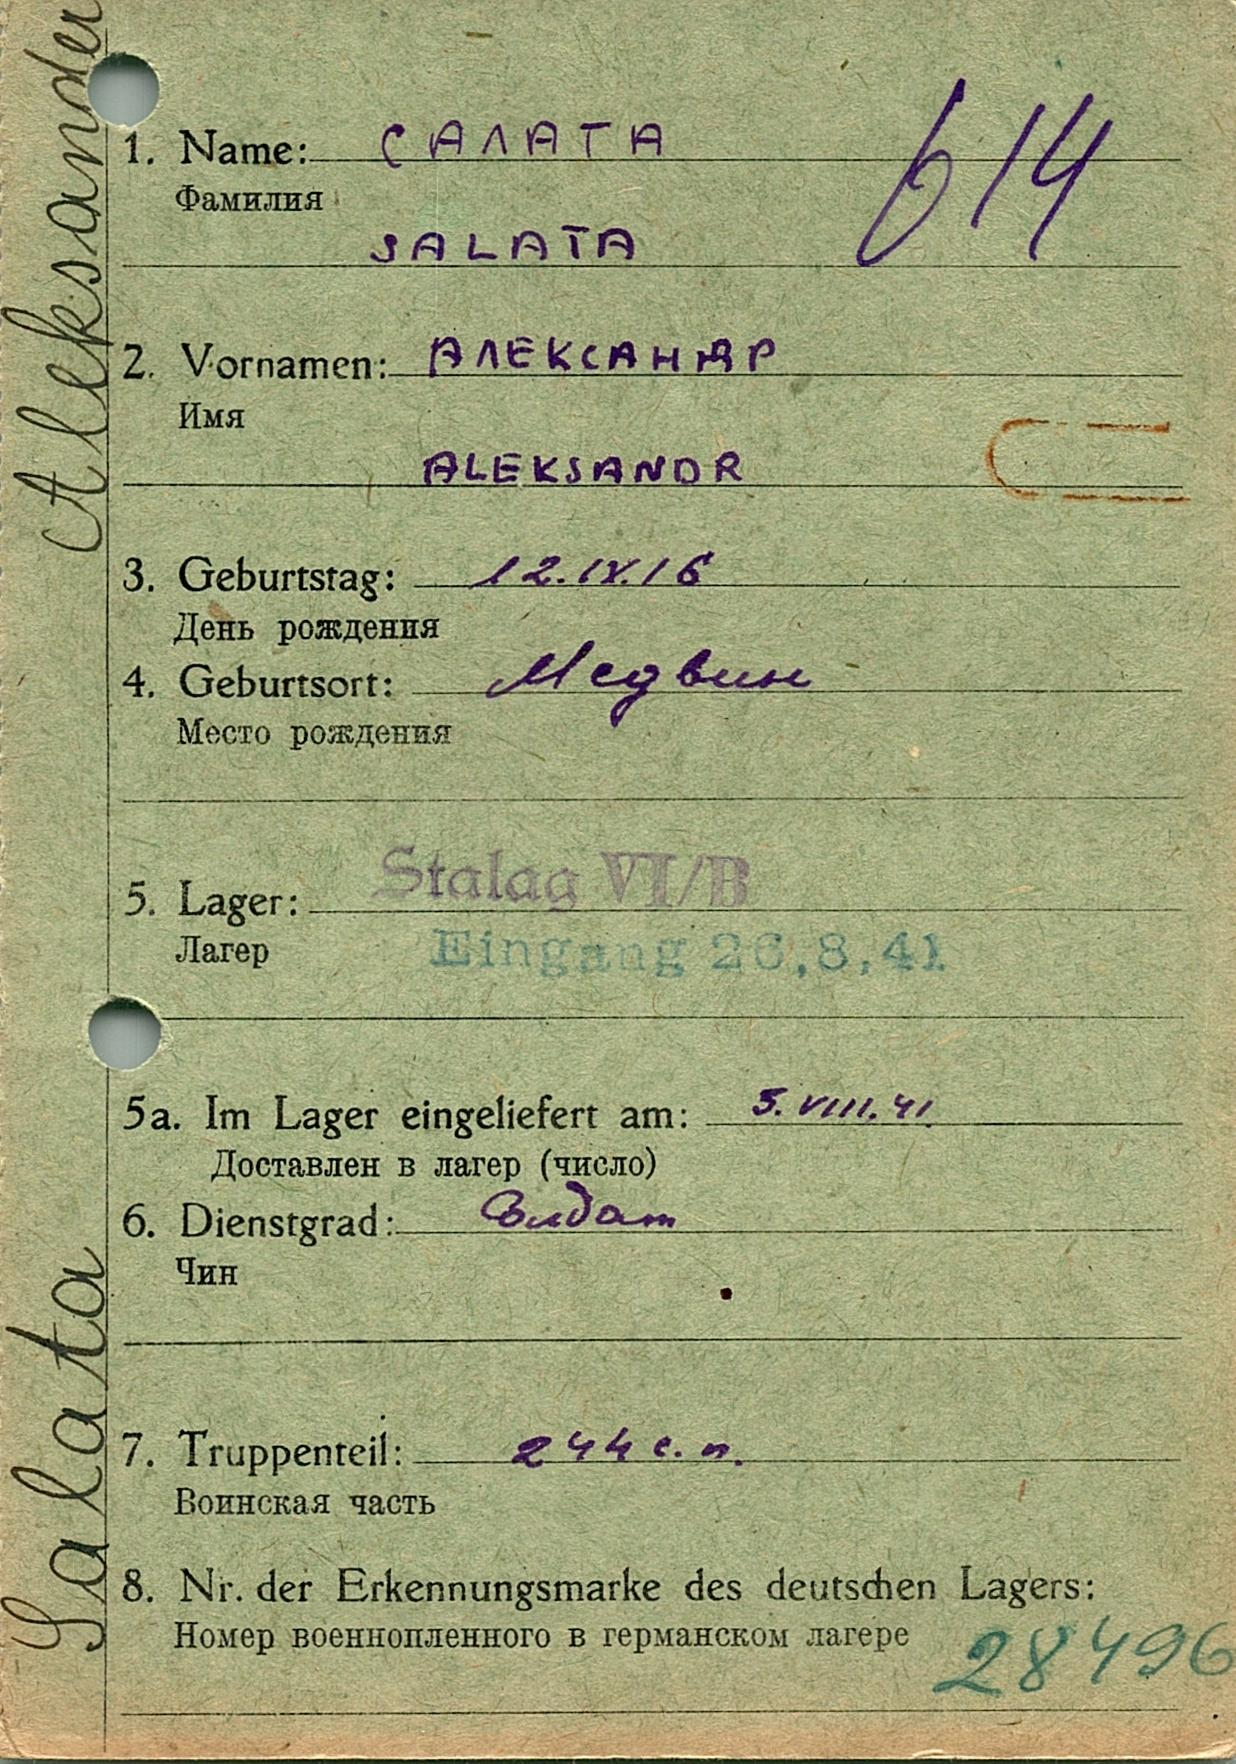 Salata Aleksander
614
1. Name: САЛАТА
Фамилия
SALATA
2. Vornamen: АЛЕКСАНДР
Имя
ALEKSANDR
3. Geburtstag: 12.IX.16
День рождения
4. Geburtsort: Медвин
Место рождения
Stalag VI/B
5. Lager:
Лагер
Eingang 26.8.41
5a. Im Lager eingeliefert am: 5.VIII.41.
Доставлен в лагер (число)
6. Dienstgrad: Солдат
Чин
7. Truppenteil: 244 с. п.
Воинская часть
8. Nr. der Erkennungsmarke des deutschen Lagers:
Номер военнопленного в германском лагере 28496